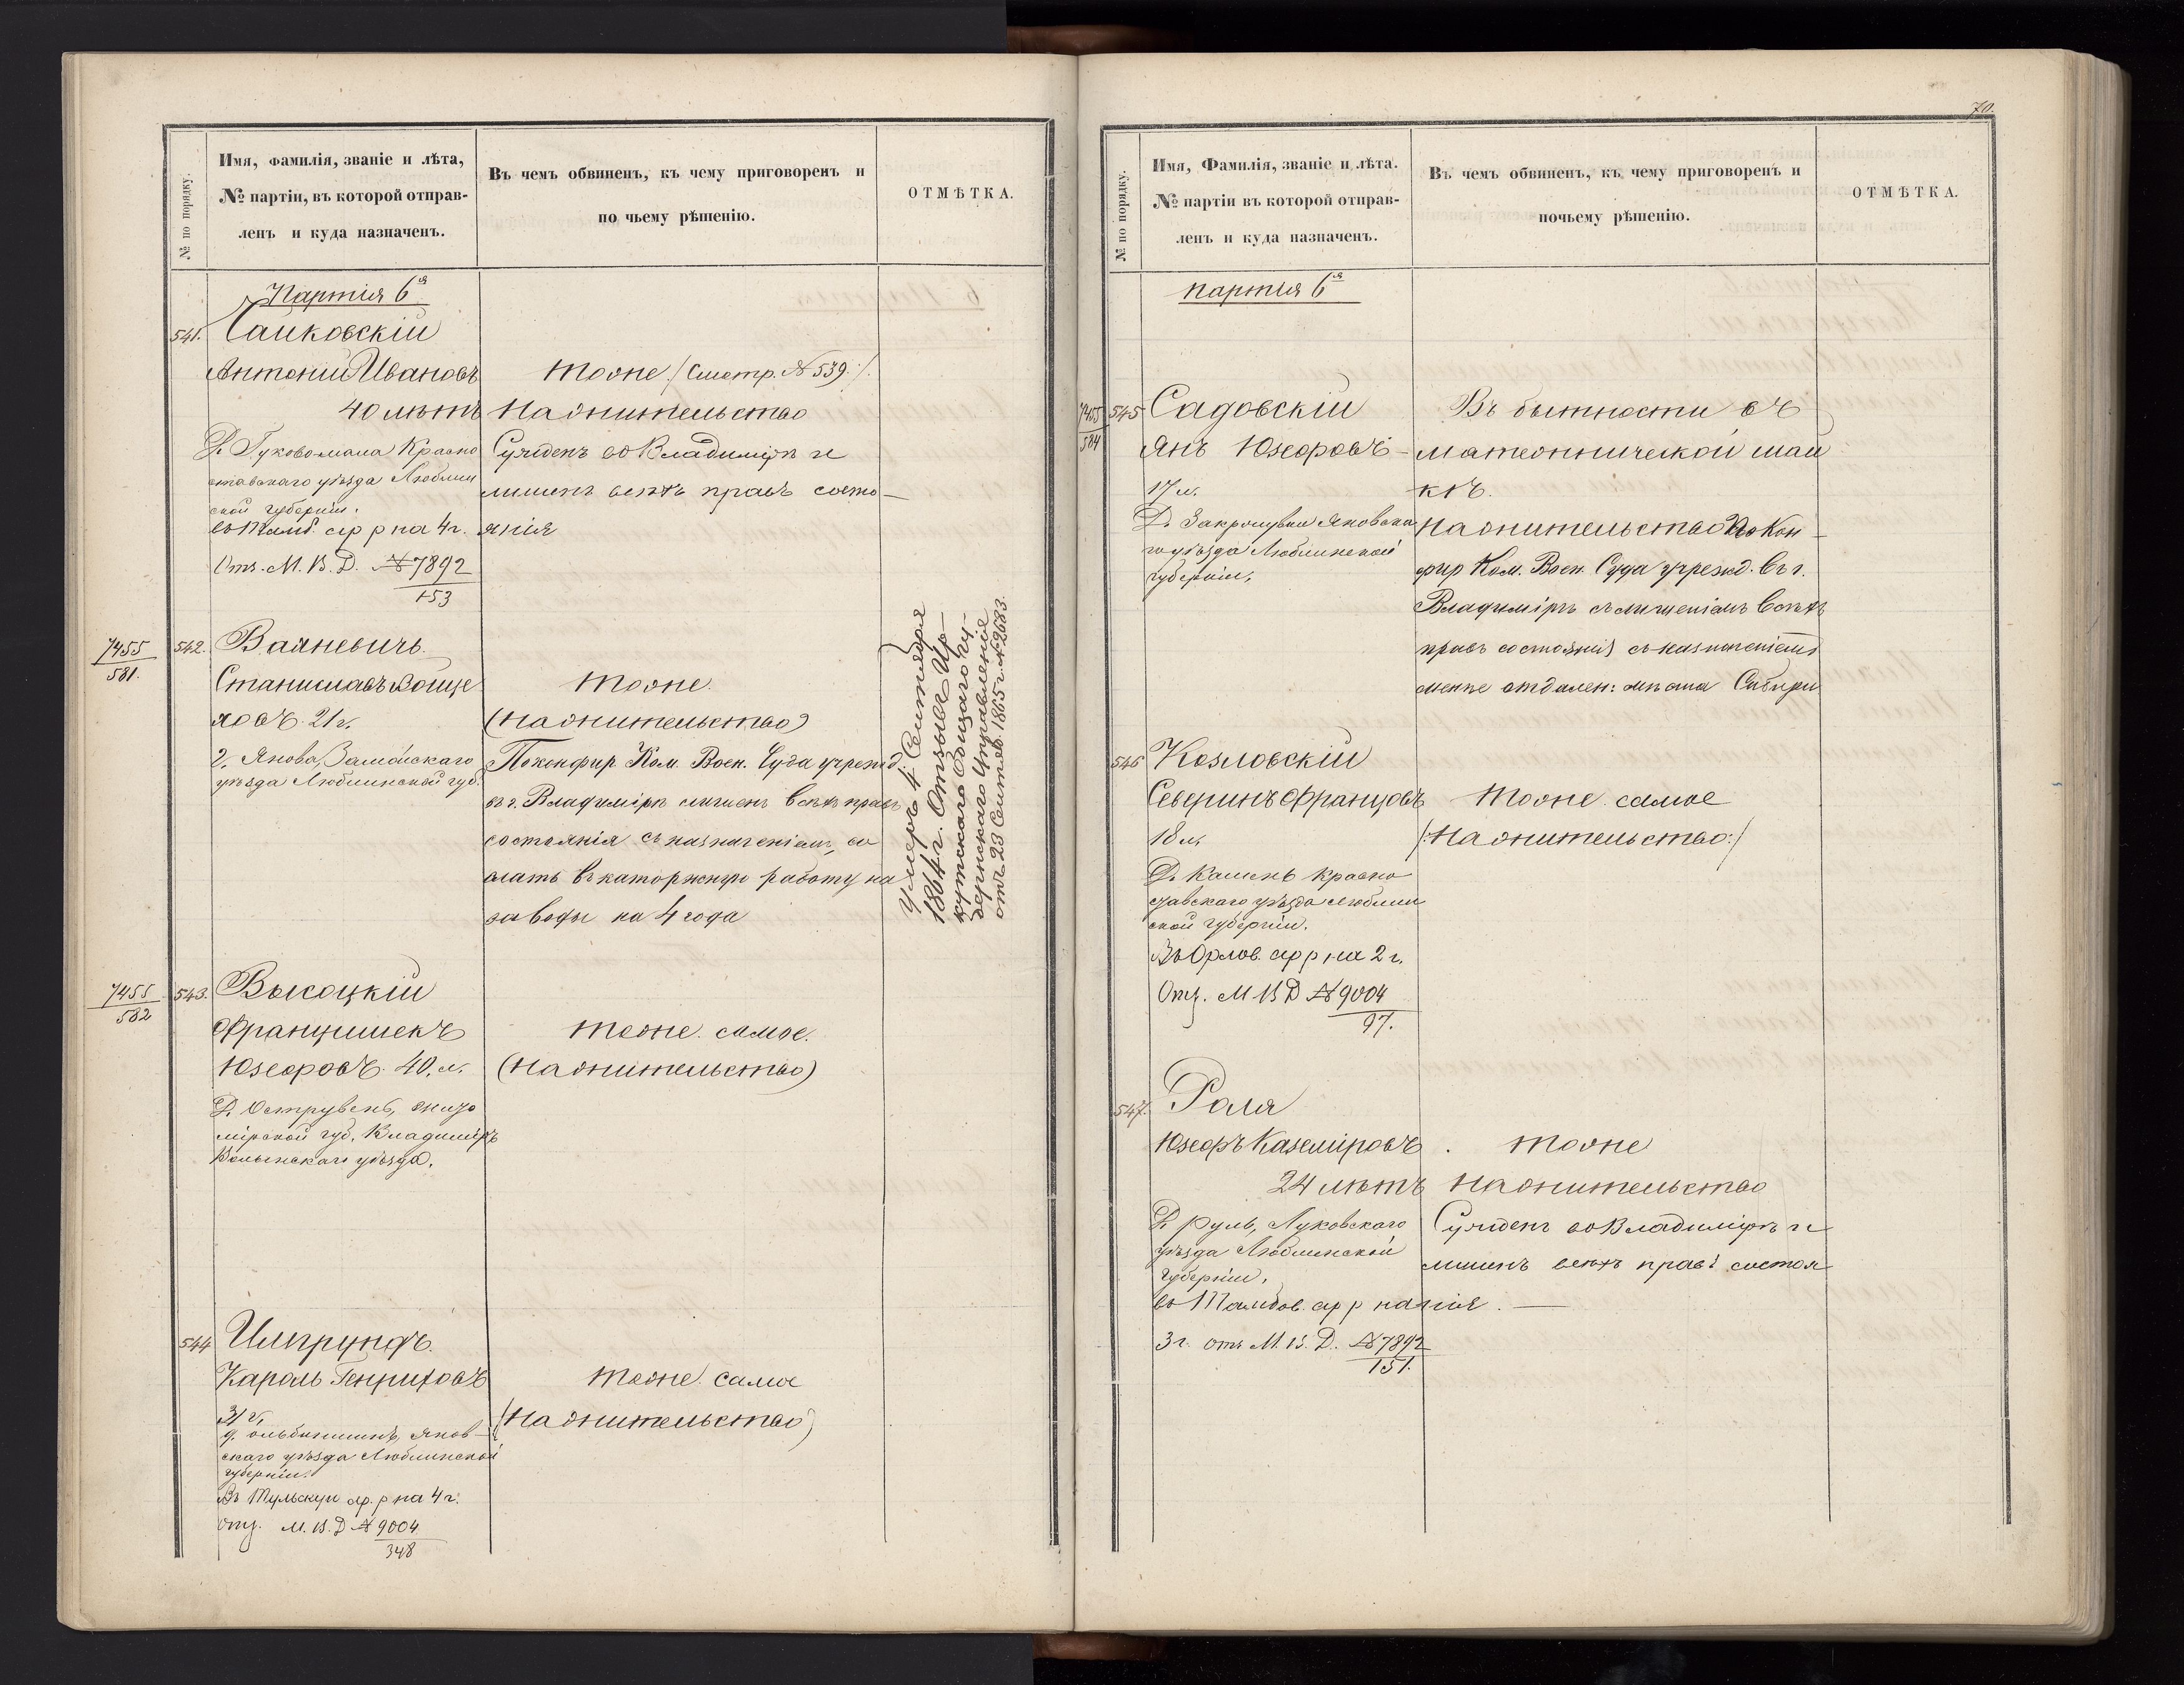 № по порядку.
Имя, фамилія, званіе и лѣта,
№ партіи, въ которой отправ-
ленъ и куда назначенъ.
Въ чемъ обвиненъ, къ чему приговоренъ и
по чьему рѣшенію.
ОТМѢТКА.
Партія 6я
541.
Санковскій
Антоній Ивановъ
40 лѣтъ
Красно
ставскаго уѣзда Люблин
ской губерніи.
въ Тамб. ар р на 4 г.
Отз. М. В. Д. № 7892
153
тоже /Смотр. № 539./
На жительство
Сужденъ во Владимірѣ и
лишенъ всѣхъ правъ состо-
янія
7455
581.
542.
Станиславъ Войце
ховъ. 21 г.
г. Янова, Замойскаго
уѣзда Люблинской губ.
тоже.
(на жительство)
По конфир Ком. Воен. Суда учрежд.
въ г. Владимірѣ лишенъ всѣхъ правъ
состоянія съ назначеніемъ со
слать въ каторжную работу на
заводы на 4 года
Умеръ 4 Сентября
1864 г. Отзывъ Ир-
кутскаго Общаго Гу-
бернскаго Управленія
отъ 23 Сентяб. 1865 г. № 2683.
7455
582
543.
Высоцкій
Францишекъ
Юзефовъ. 40. л.
мірской губ. Владимиръ
Волынскаго уѣзда.
тоже самое.
(на жительство)
544
Кароль Генриховъ
31 г.
Янов-
скаго уѣзда Люблинской
губерніи.
Въ Тульскую ар. р на 4 г.
Отз. М. В. Д № 9004
348
тоже самое
(на жительство)
70.
№ по порядку.
Имя, Фамилія, званіе и лѣта.
№ партіи въ которой отправ-
ленъ и куда назначенъ.
Въ чемъ обвиненъ, къ чему приговоренъ и
почьему рѣшенію.
ОТМѢТКА.
партія 6я
7455
584
545
Садовскій
Янъ Юзефовъ
17 л.
Яновска
го уѣзда Люблинской
губерніи.
Въ бытности въ
мятежнической шай
кѣ.
На жительство По Кон-
фир Ком. Воен. Суда учрежд. въ г.
Владимірѣ съ лишеніемъ всѣхъ
правъ состоянія съ назначеніемъ
менѣе отдален: мѣста Сибири
546
Козловскій
Северинъ Францовъ
18 л.
Д. Камень Красно
ставскаго уѣзда Люблин
ской губерніи.
Въ Орлов. ар р на 2 г.
Отз. М В Д № 9004
97.
тоже самое
/:на жительство:/
547.
Роля
Юзефъ Каземіровъ
24 лѣтъ
Д. Руль, Луковскаго
уѣзда Люблинской
губерніи.
въ Тамбов. ар р на
3 г. отз М. В. Д. № 7892
151.
тоже
на жительство
Сужденъ во Владимірѣ и
лишенъ всѣхъ правъ состоя
нія.